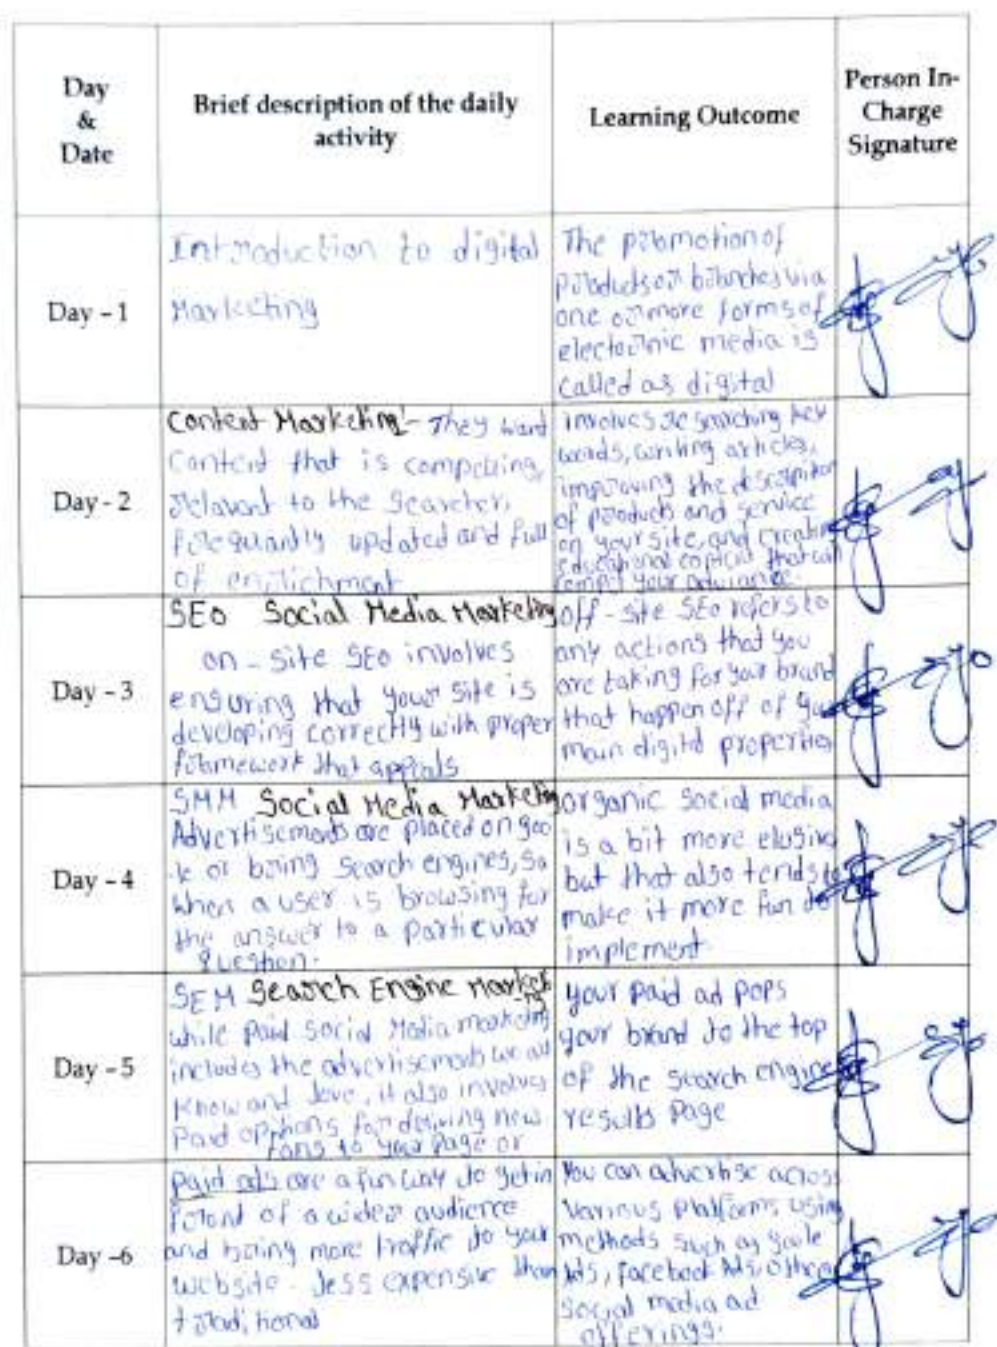 Day
&
Date
Brief description of the daily
activity
Learning Outcome
Person In-
Charge
Signature
Day - 1
Introduction to digital
Marketing
The promotion of
products or via
one or more forms of
electronic media is
called as digital
Day - 2
Content Marketing:- They want
content that is
relavant to the searcher,
updated and full
of enrichment
involves key
words, writing articles,
improving the
of products and service
on your site, and
educational content that can
your
Day - 3
SEO Social Media Marketing
on - site SEO involves
ensuring that your site is
developing correctly with proper
that
off - site SEO refers to
any actions that you
are taking for your brand
that happen off of
main digital properties
Day - 4
SMM Social Media Marketing
are placed on goo
or search engines, so
when a user is browsing for
the answer to a particular
question.
organic social media
is a bit more
but that also tends to
make it more fun to
implement
Day - 5
SEM Search Engine
while paid social Media
includes the we all
know and love, it also involves
paid options for new
fans to your page or
your paid ad pops
your brand to the top
of the search engine
results page
Day - 6
paid ads are a fun way to get in
of a wider audience
and bring more traffic to your
website. less expensive than

You can advertise across
various platforms using
methods such as
Ads, Facebook Ads,
social media ad
offerings.